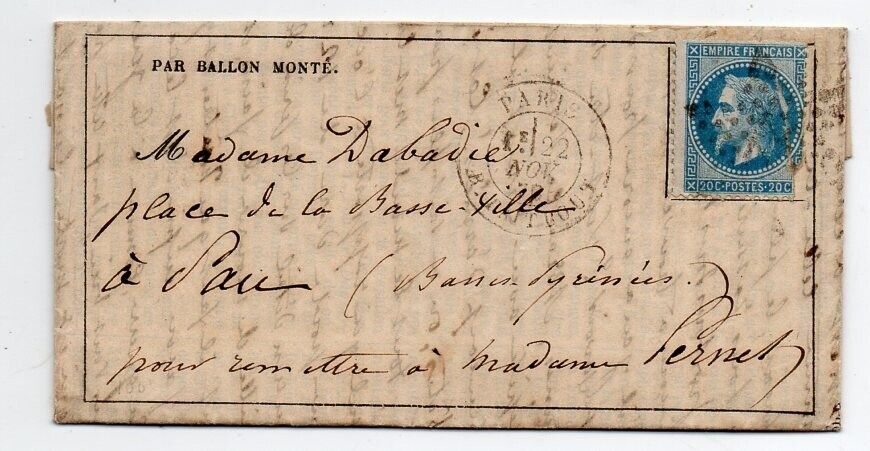 PAR BALLON MONTÉ.
EMPIRE FRANÇAIS
20C·POSTES·20C
PARIS
22
NOV
Madame Dabadie
place de la Basse-ville
à Pau (Basses Pyrénées.)
pour remettre à madame Pernet